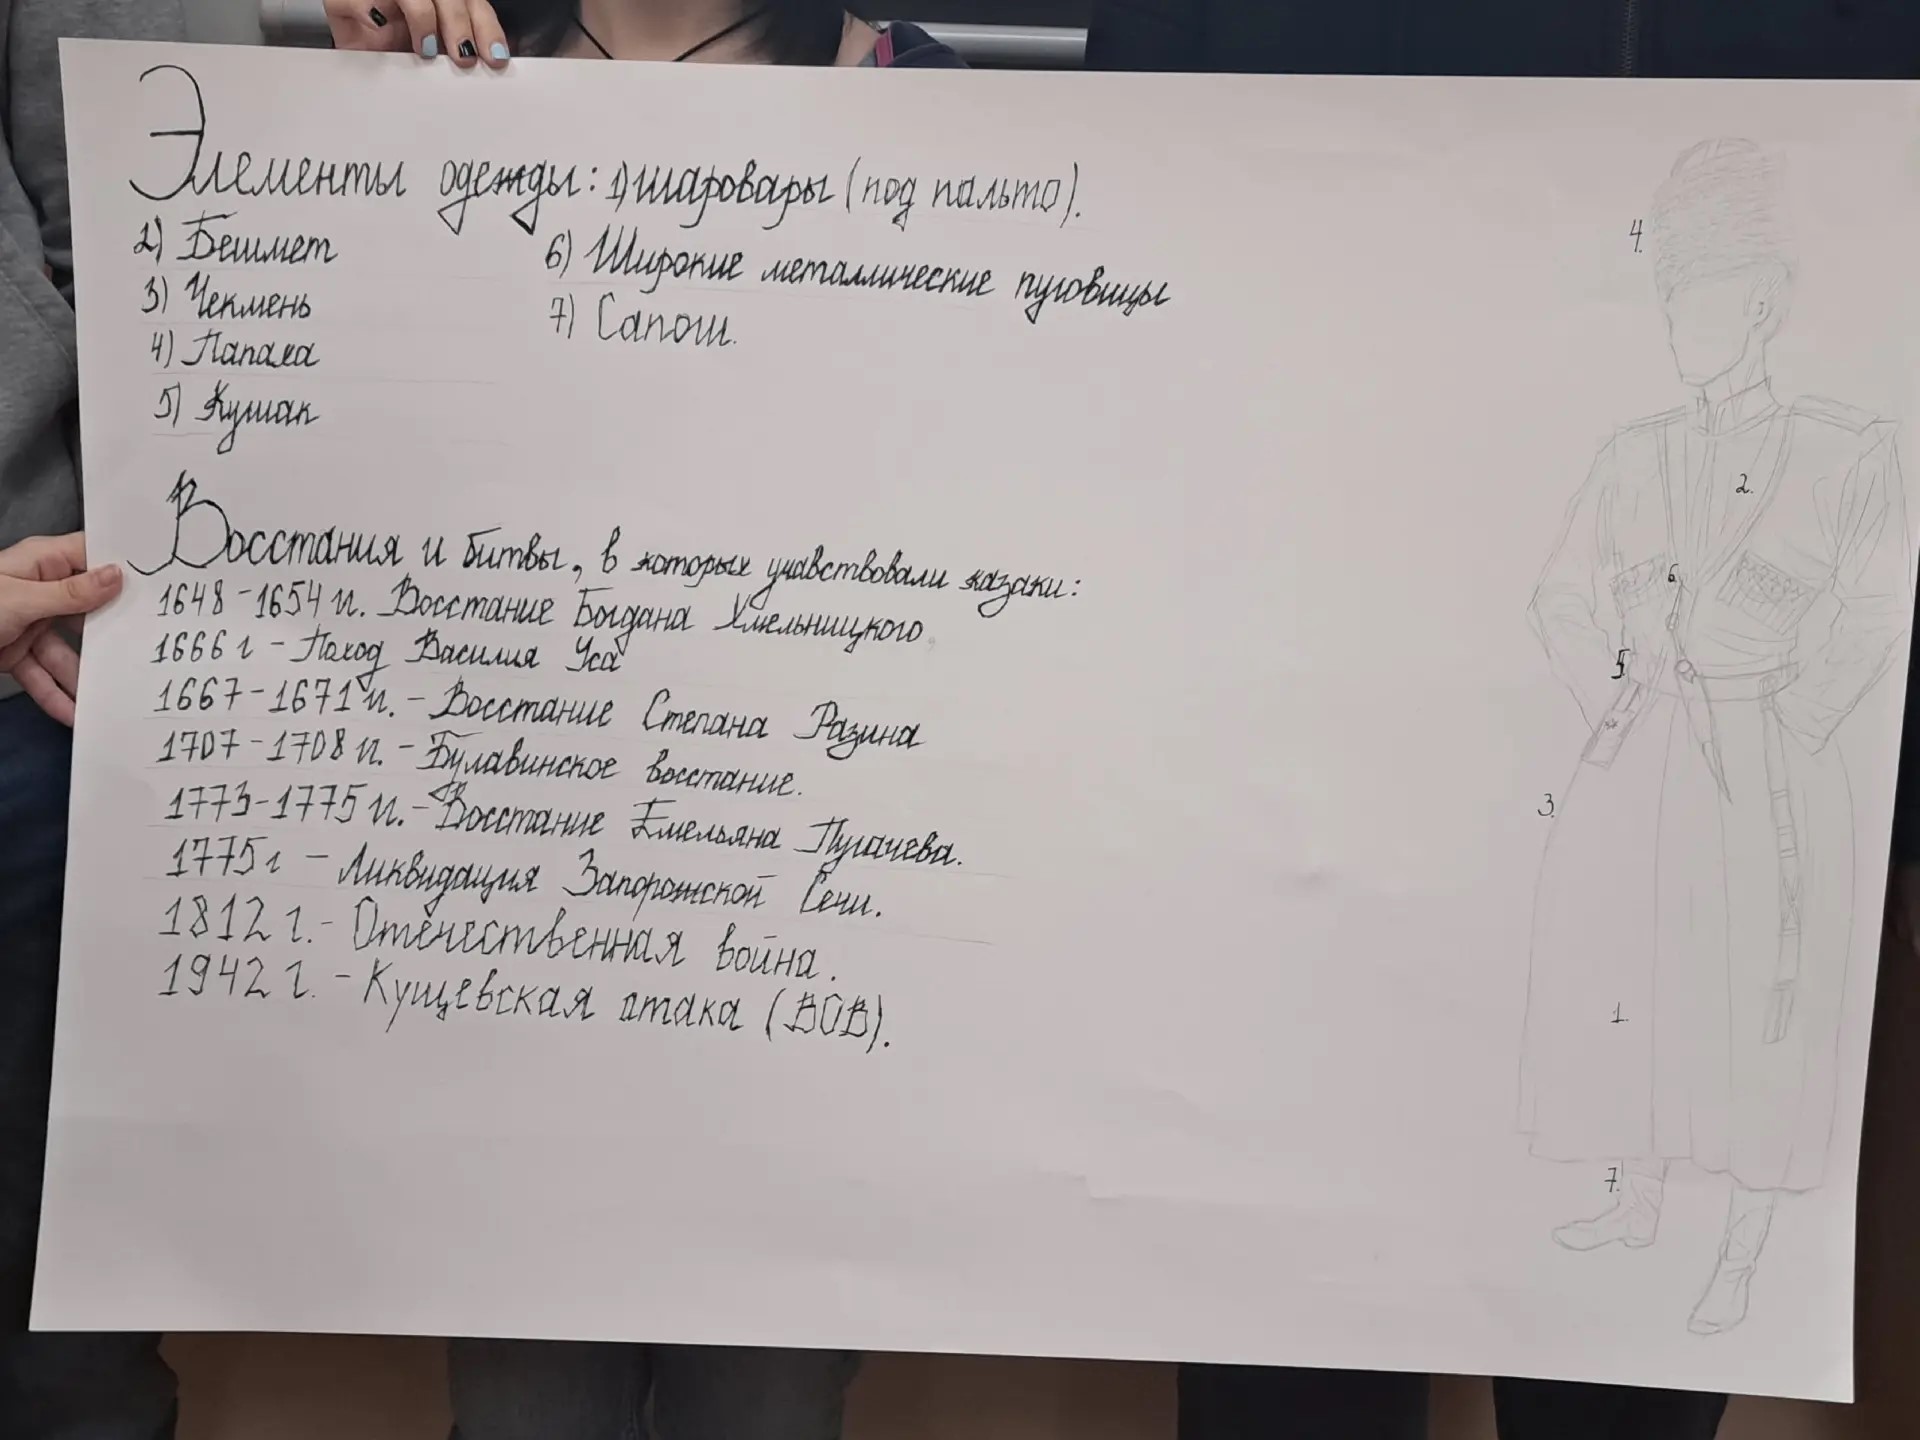 Элементы одежды: 1) шаровары (под пальто).
2) Бешмет
3) Чекмень
4) Папаха
5) Кушак
6) Широкие металлические пуговицы
7) Сапоги.
Восстания и битвы, в которых учавствовали казаки:
1648-1654 гг. Восстание Богдана Хмельницкого
1666 г - Поход Василия Уса
1667-1671 гг. - Восстание Степана Разина
1707-1708 гг. - Булавинское восстание.
1773-1775 гг. - Восстание Емельяна Пугачева.
1775 г - Ликвидация Запорожской Сечи.
1812 г. - Отечественная война.
1942 г. - Кущевская атака (ВОВ).
4.
2.
6.
5.
3.
1.
7.